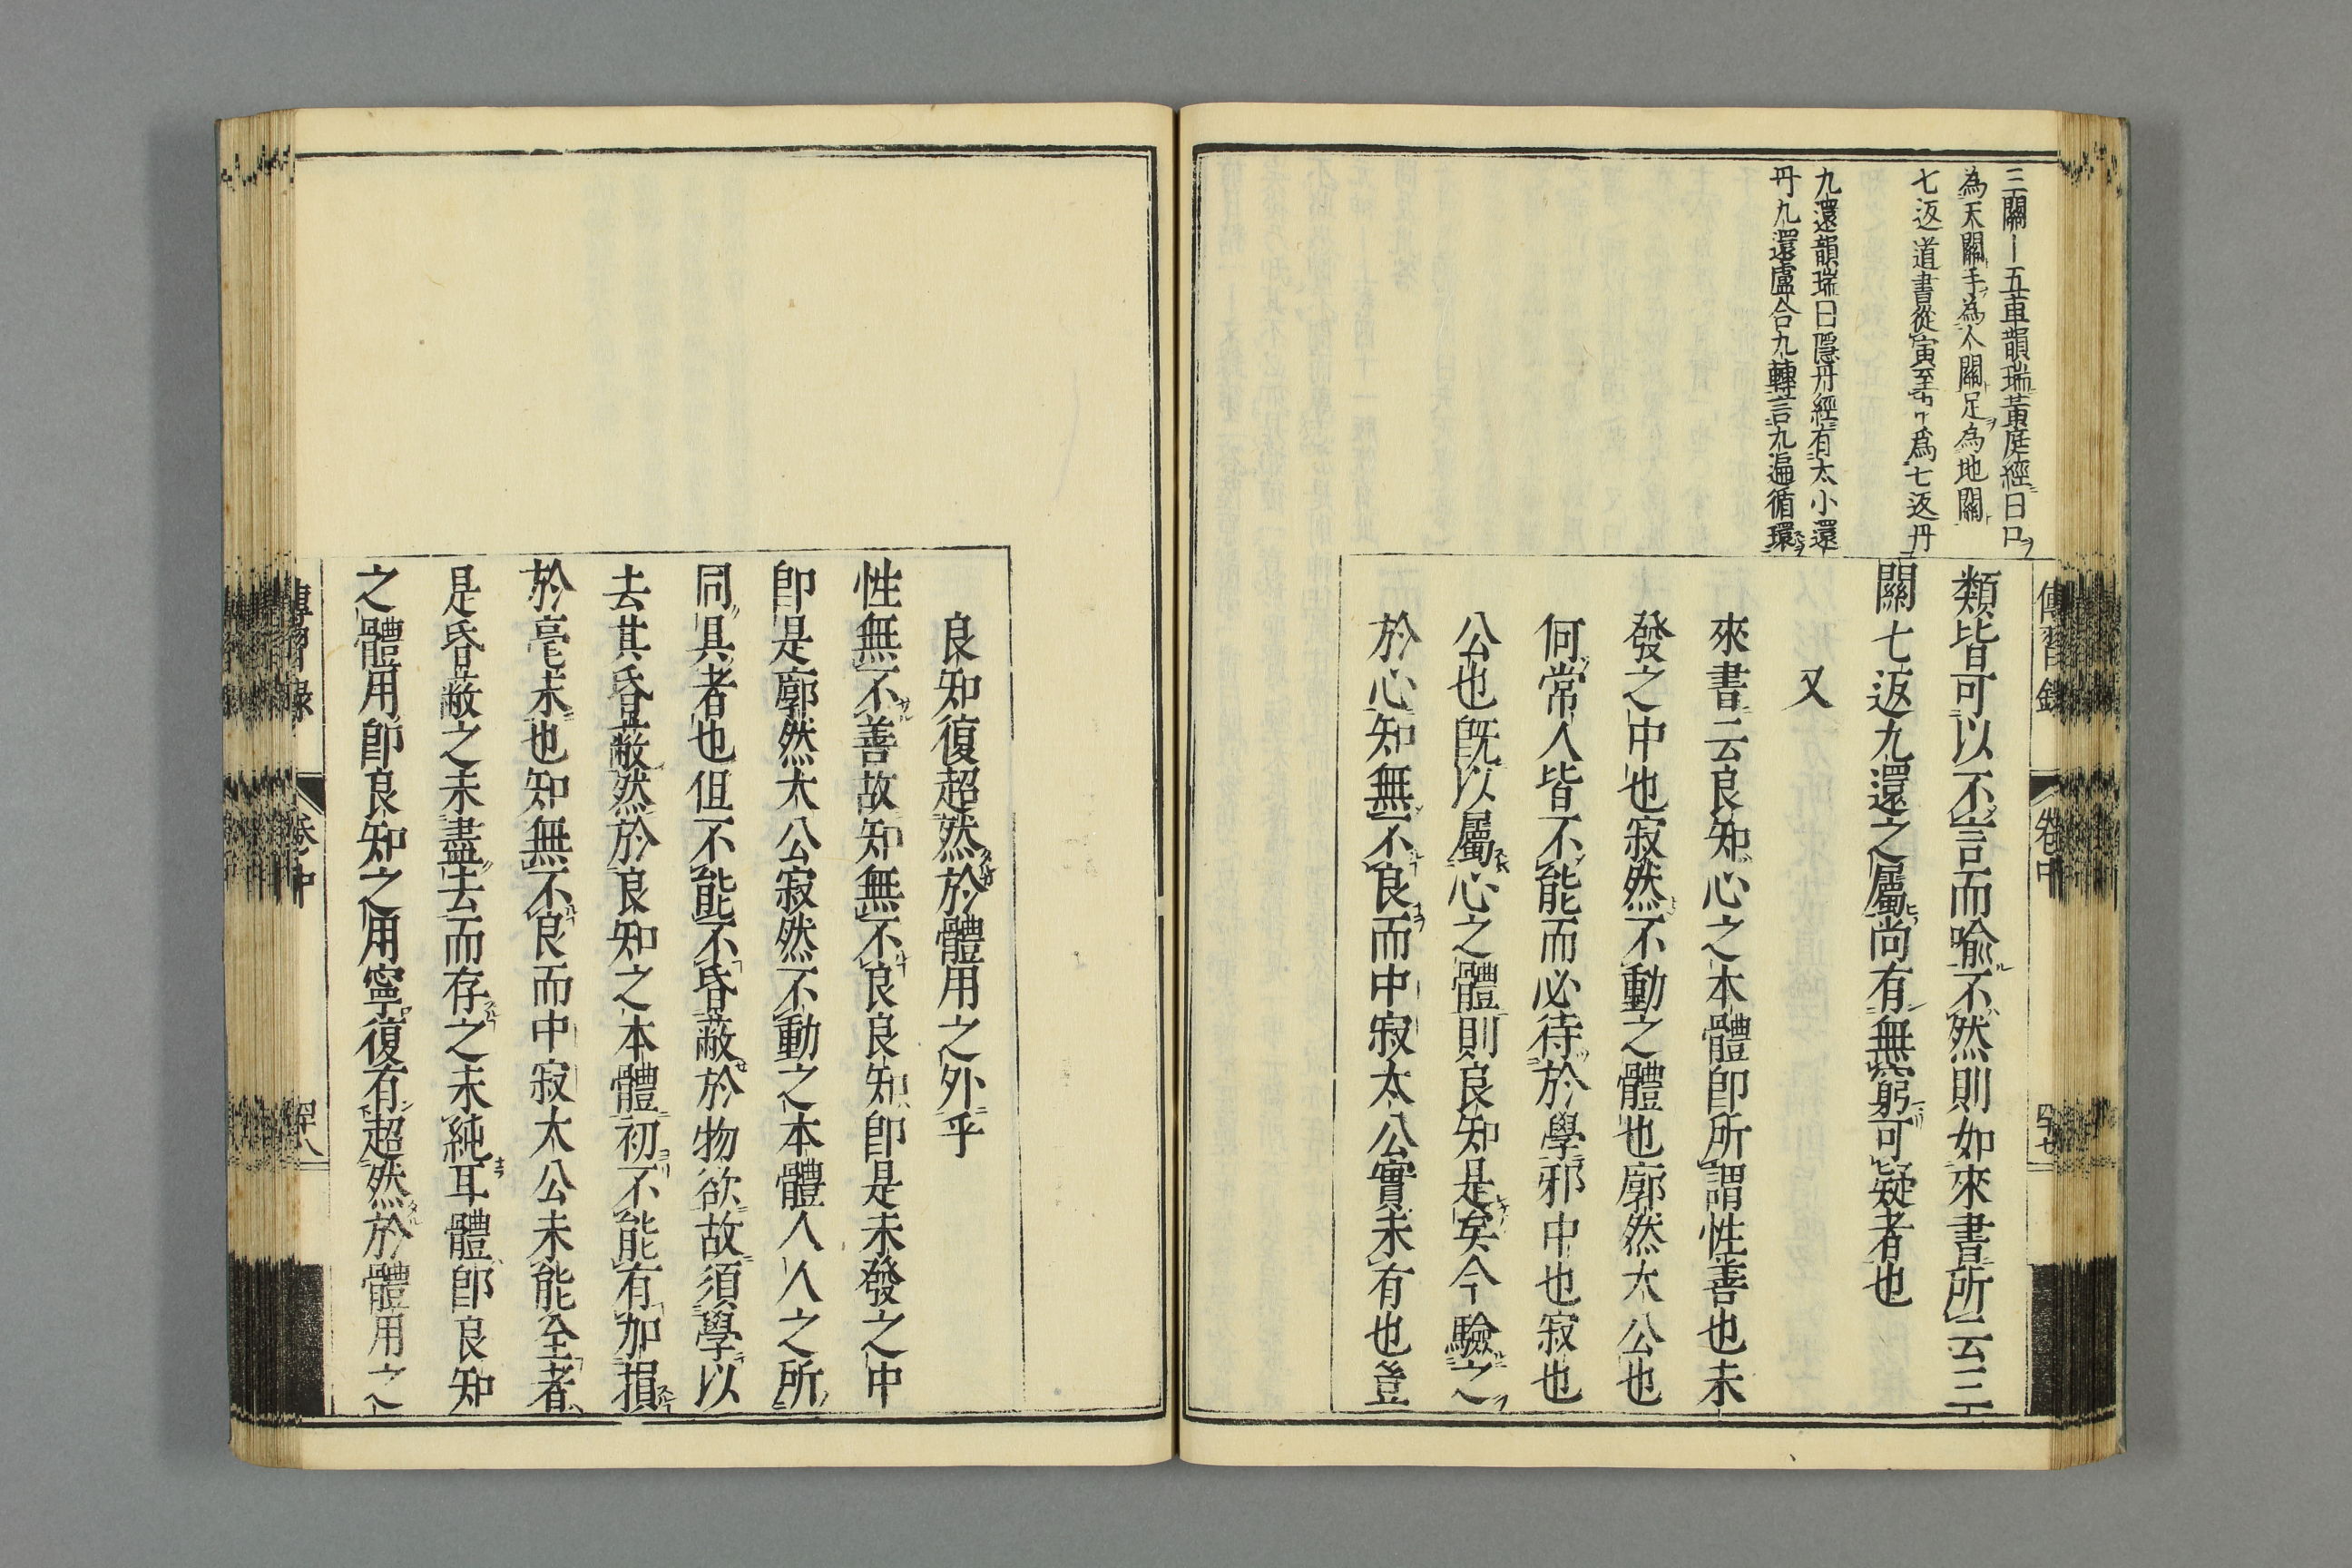 三關—五車韻瑞黃庭經曰口
為天關手為人關足為地關
七返道書從寅至為七返丹
九還韻瑞曰隱丹經有太小還
丹九還盧合九轉言九遍循環
傳習錄 卷中
類皆可以不言而喻不然則如來書所云三
關七返九還之屬尚有無窮可疑者也
又
來書云良知心之本體卽所謂性善也未
發之中也寂然不動之體也廓然大公也
何常人皆不能而必待於學邪中也寂也
公也旣以屬心之體則良知是矣今驗之
於心知無不良而中寂太公實未有也豈
良知復超然於體用之外乎
性無不善故知無不良良知卽是未發之中
卽是廓然太公寂然不動之本體人人之所
同具者也但不能不昏蔽於物欲故須學以
去其昏蔽然於良知之本體初不能有加損
於毫末也知無不良而中寂大公未能至者
是昏蔽之未盡去而存之未純耳體卽良知
之體用卽良知之用寧復有超然於體用之
傳習錄 卷中 四十八